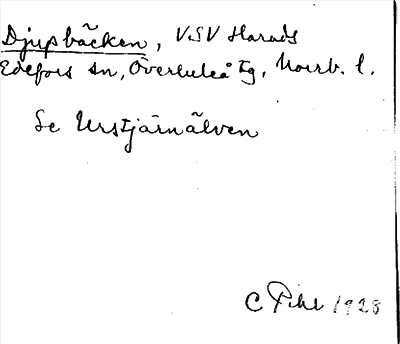 Djupbäcken, VSV Harads
Edefors sn, Överluleå tg, Norrb. l.
Se Urstjärnälven
C Pihl 1928